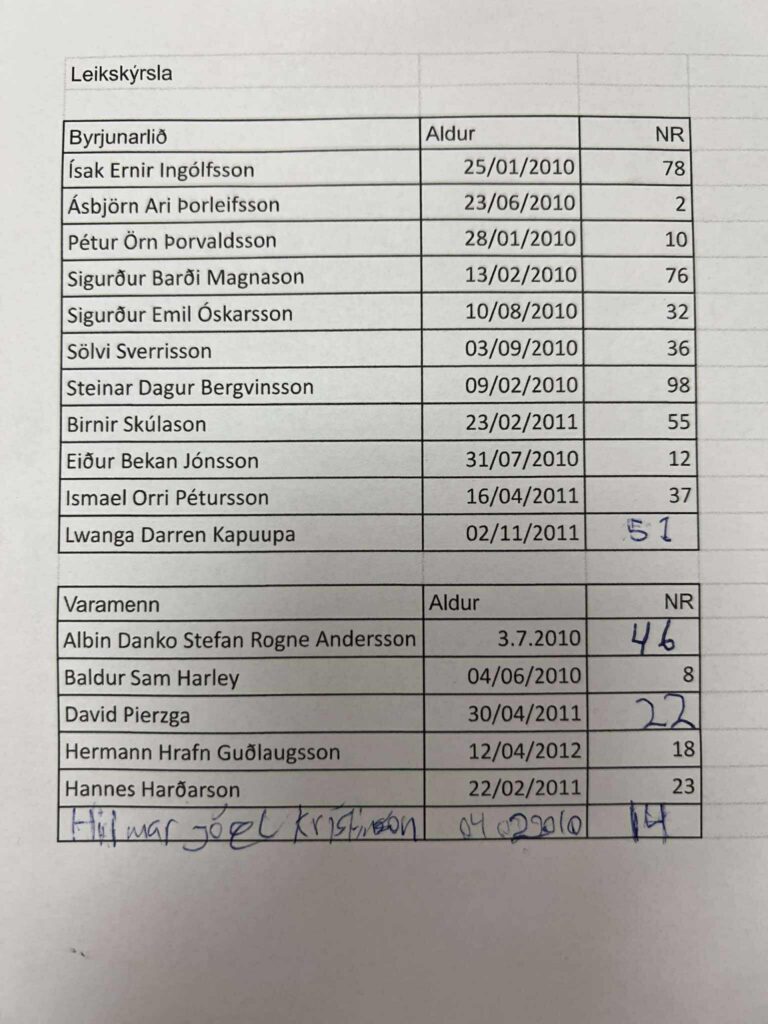 Leikskýrsla
Byrjunarlið Aldur NR
Ísak Ernir Ingólfsson 25/01/2010 78
Ásbjörn Ari Þorleifsson 23/06/2010 2
Pétur Örn Þorvaldsson 28/01/2010 10
Sigurður Barði Magnason 13/02/2010 76
Sigurður Emil Óskarsson 10/08/2010 32
Sölvi Sverrisson 03/09/2010 36
Steinar Dagur Bergvinsson 09/02/2010 98
Birnir Skúlason 23/02/2011 55
Eiður Bekan Jónsson 31/07/2010 12
Ismael Orri Pétursson 16/04/2011 37
Lwanga Darren Kapuupa 02/11/2011 51
Varamenn Aldur NR
Albin Danko Stefan Rogne Andersson 3.7.2010 46
Baldur Sam Harley 04/06/2010 8
David Pierzga 30/04/2011 22
Hermann Hrafn Guðlaugsson 12/04/2012 18
Hannes Harðarson 22/02/2011 23
Hilmar Jóel Kristinson 14